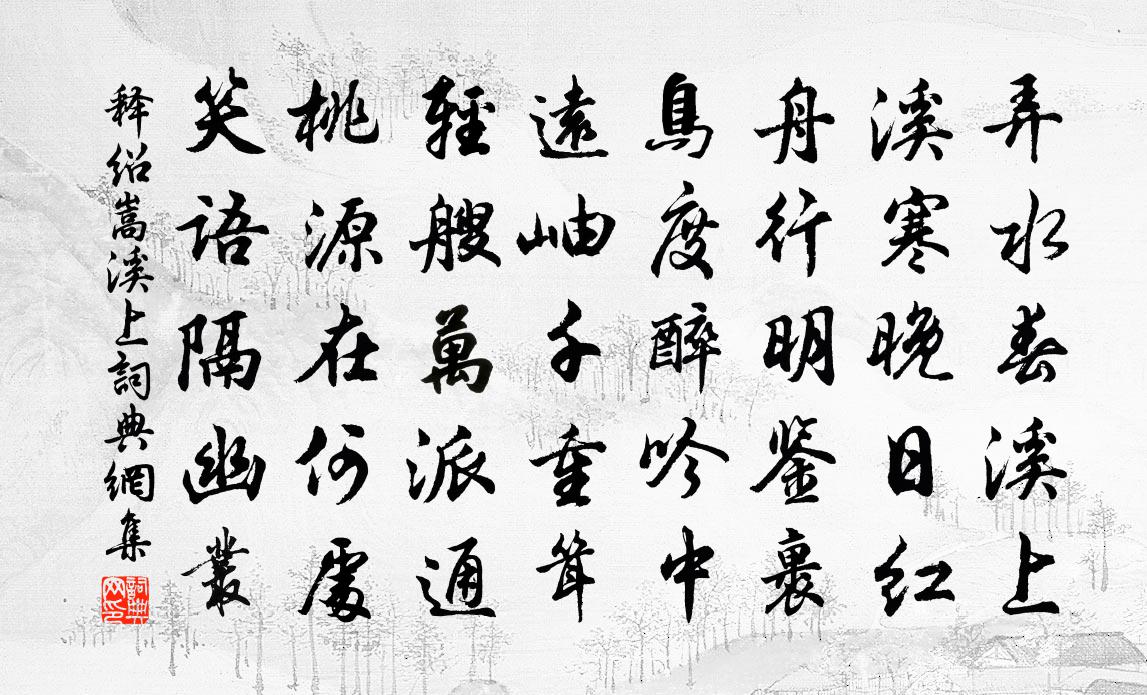 弄水春溪上
溪寒晚日红
舟行明鉴裏
鳥度醉吟中
遠岫千重耸
輕艘萬派通
桃源在何處
笑語隔幽叢
释绍嵩溪上詞典網集
詞典网印